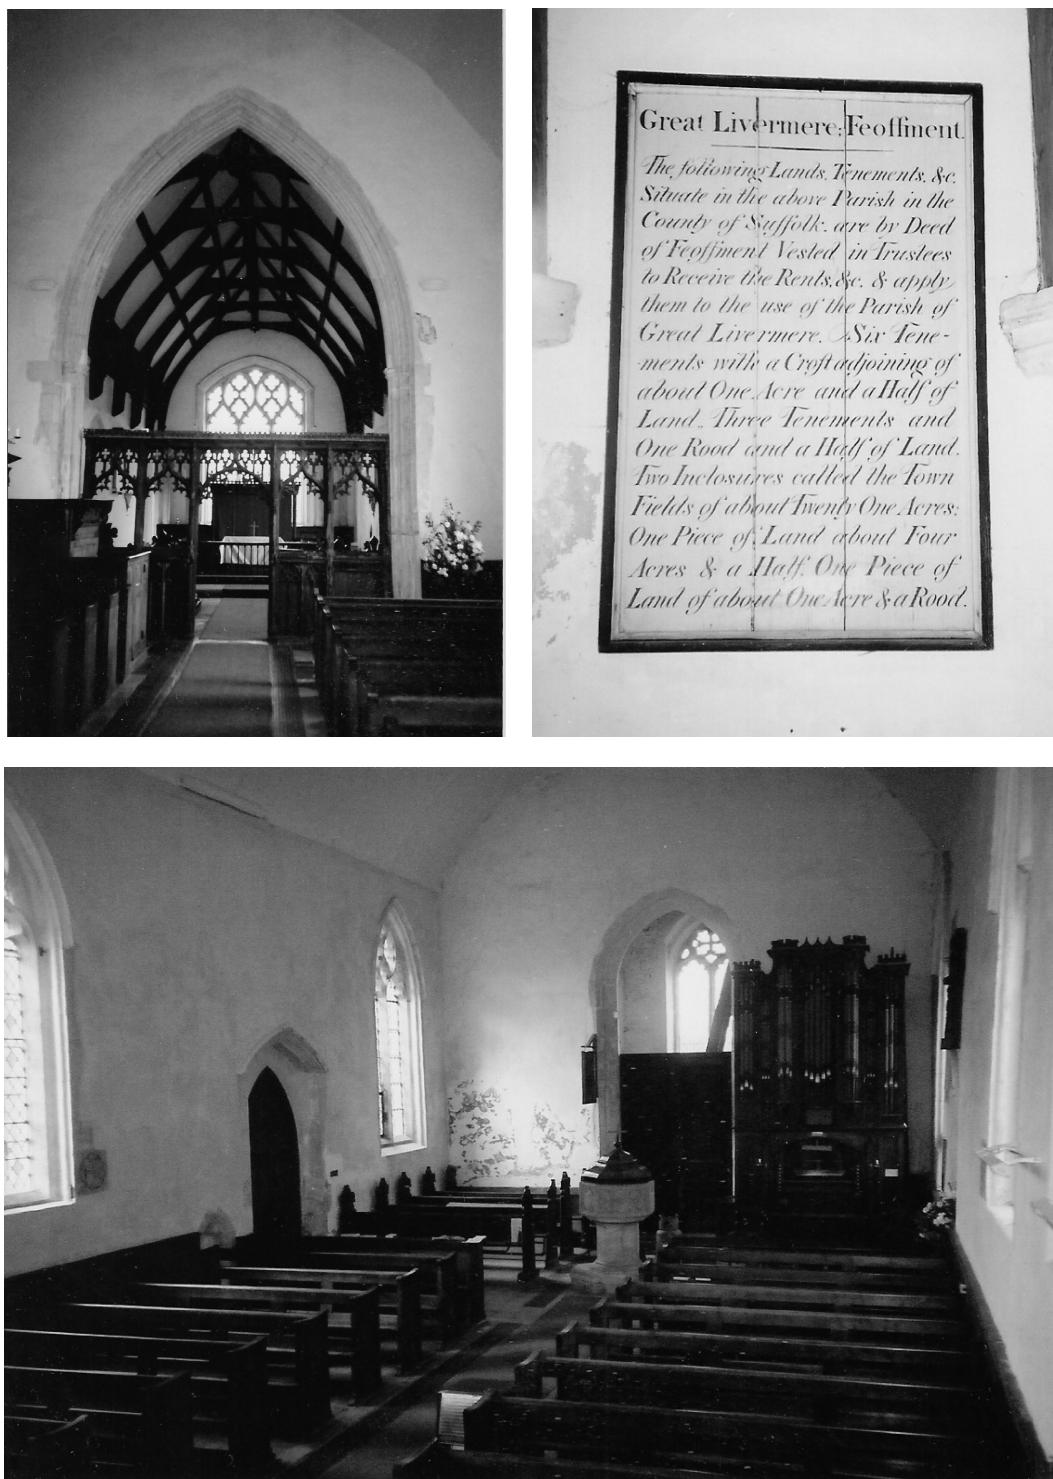 Great Livermere; Feoffment.
The following Lands, Tenements, &c.
Situate in the above Parish in the
County of Suffolk. are by Deed
of Feoffment Vested in Trustees
to Receive the Rents, &c. & apply
them to the use of the Parish of
Great Livermere. Six Tene-
-ments with a Croft adjoining of
about One Acre and a Half of
Land. Three Tenements and
One Rood and a Half of Land.
Two Inclosures called the Town
Fields of about Twenty One Acres;
One Piece of Land about Four
Acres & a Half. One Piece of
Land of about One Acre & a Rood.